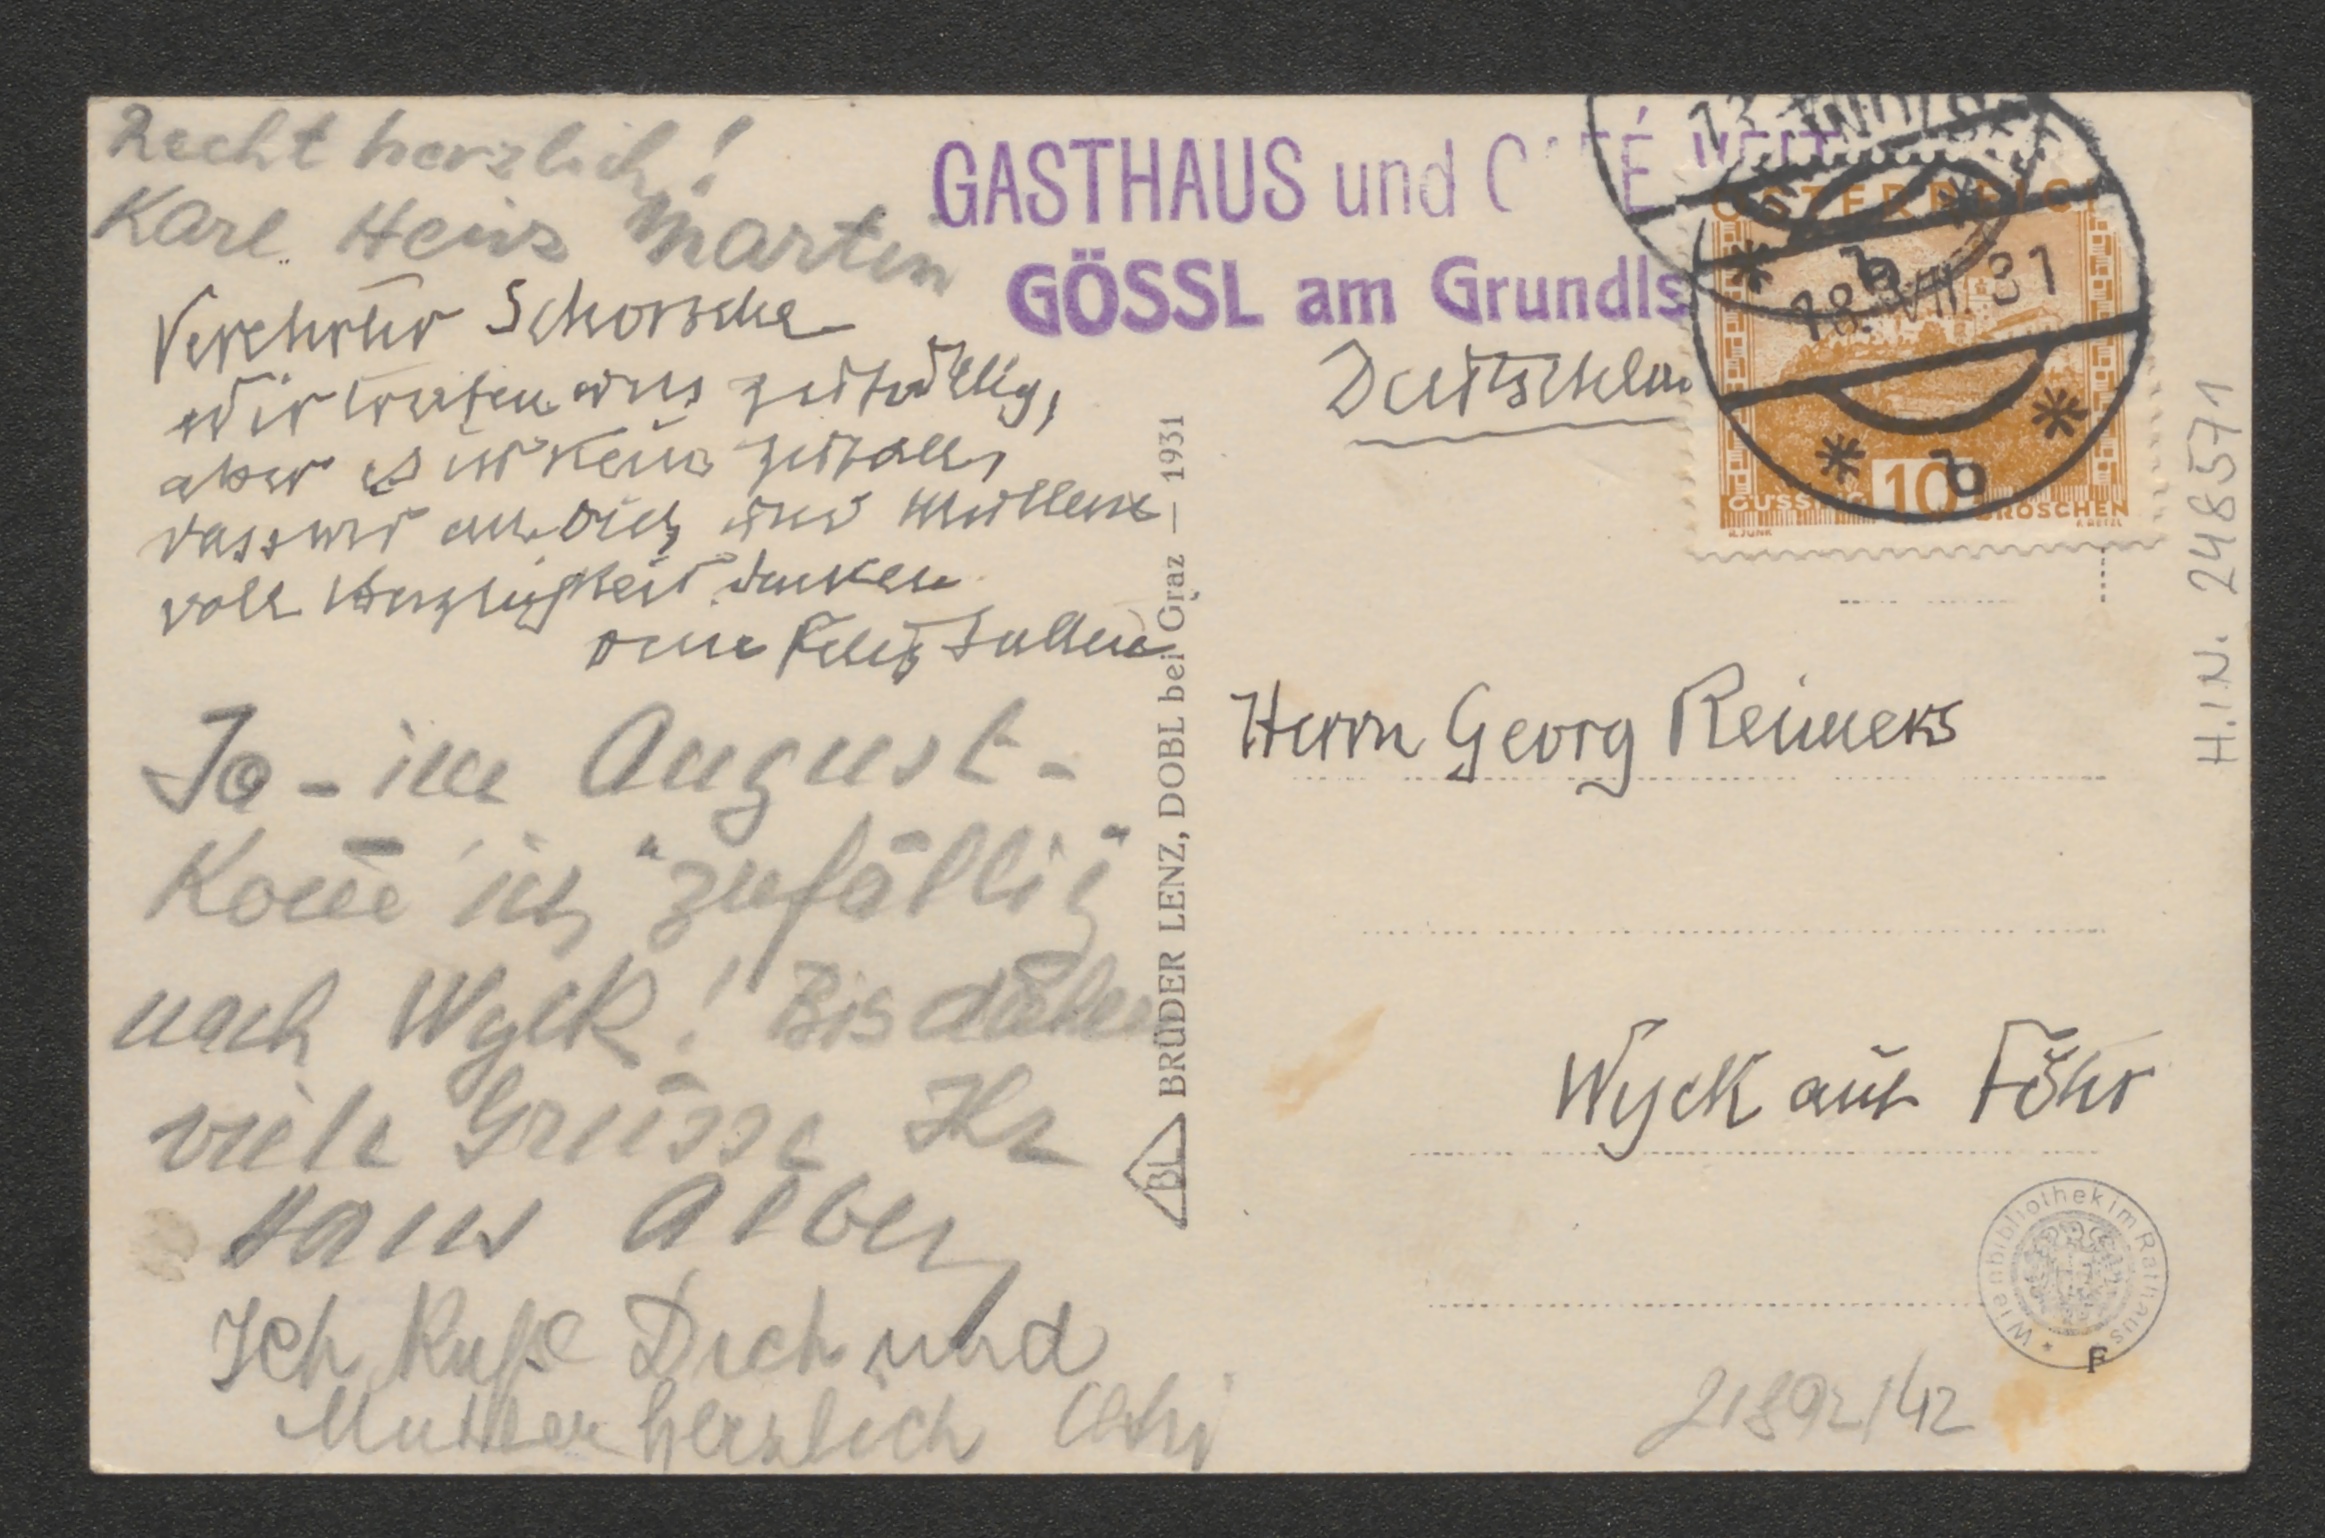 Recht herzlich!
Karl Heinz Martin
Verehrter Schorsche
wir treffen uns zufällig,
aber es ist kein Zufall,
dass wir an Dich und Mutterl
voll Herzlichkeit denken
Dein Felix Salten
Ja - im August -
Kom̄e ich "zufällig"
nach Wyck! Bis dahin
viele Grüsse Ihr
Hans Alber
Ich Küße Dich und
Mutter herzlich
BL BRÜDER LENZ, DOBL bei Graz — 1931
GASTHAUS und CAFÉ VEIT
GÖSSL am Grundls
ÖSTERREICH
18. VIII. 31
b
b
GÜSSING 10 GROSCHEN
R. JUNK
Deutschlan
Herrn Georg Reimers
Wyck auf Föhr
H.I.N. 248571
Wienbibliothek im Rathaus
F
21892/42